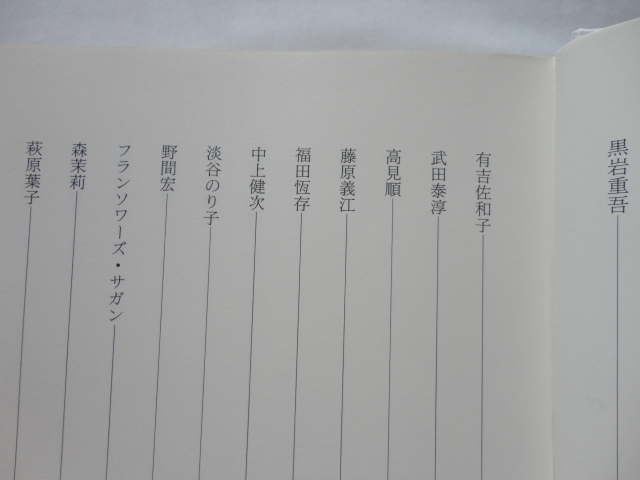 黒岩重吾
有吉佐和子
武田泰淳
高見順
藤原義江
福田恆存
中上健次
淡谷のり子
野間宏
フランソワーズ・サガン
森茉莉
萩原葉子